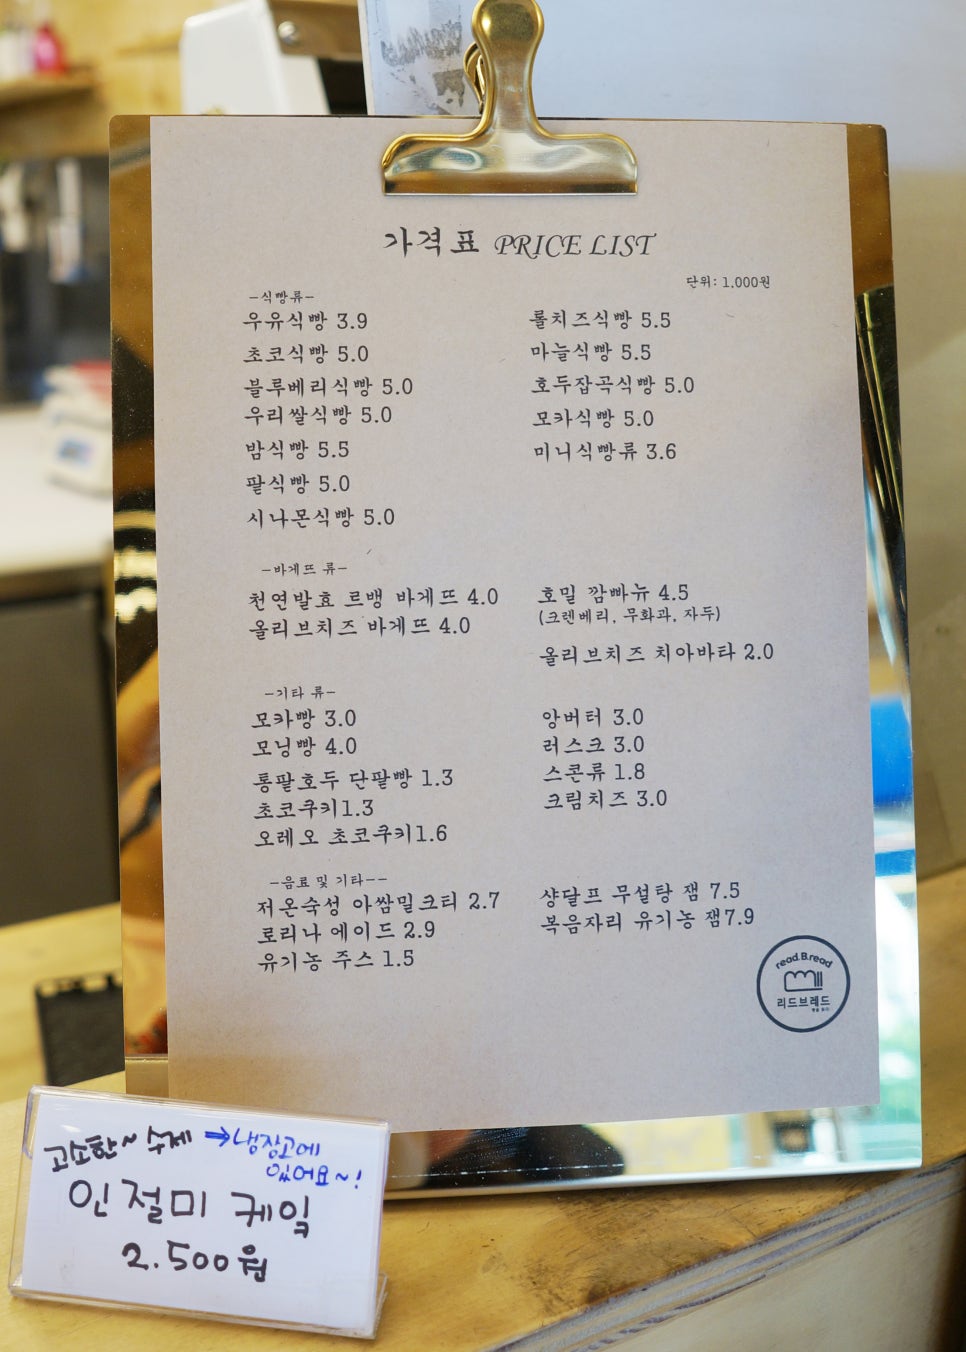 가격표 PRICE LIST
단위: 1,000원
-식빵류-
우유식빵 3.9
초코식빵 5.0
블루베리식빵 5.0
우리쌀식빵 5.0
밤식빵 5.5
팥식빵 5.0
시나몬식빵 5.0
롤치즈식빵 5.5
마늘식빵 5.5
호두잡곡식빵 5.0
모카식빵 5.0
미니식빵류 3.6
-바게뜨 류-
천연발효 르뱅 바게뜨 4.0
올리브치즈 바게뜨 4.0
호밀 깜빠뉴 4.5
(크렌베리, 무화과, 자두)
올리브치즈 치아바타 2.0
-기타 류-
모카빵 3.0
모닝빵 4.0
통팥호두 단팥빵 1.3
초코쿠키1.3
오레오 초코쿠키1.6
앙버터 3.0
러스크 3.0
스콘류 1.8
크림치즈 3.0
-음료 및 기타--
저온숙성 아쌈밀크티 2.7
로리나 에이드 2.9
유기농 주스 1.5
샹달프 무설탕 잼 7.5
복음자리 유기농 잼7.9
read.B.read
리드브레드
고소한~ 수제 ➔냉장고에
있어요~!
인절미 케잌
2.500원